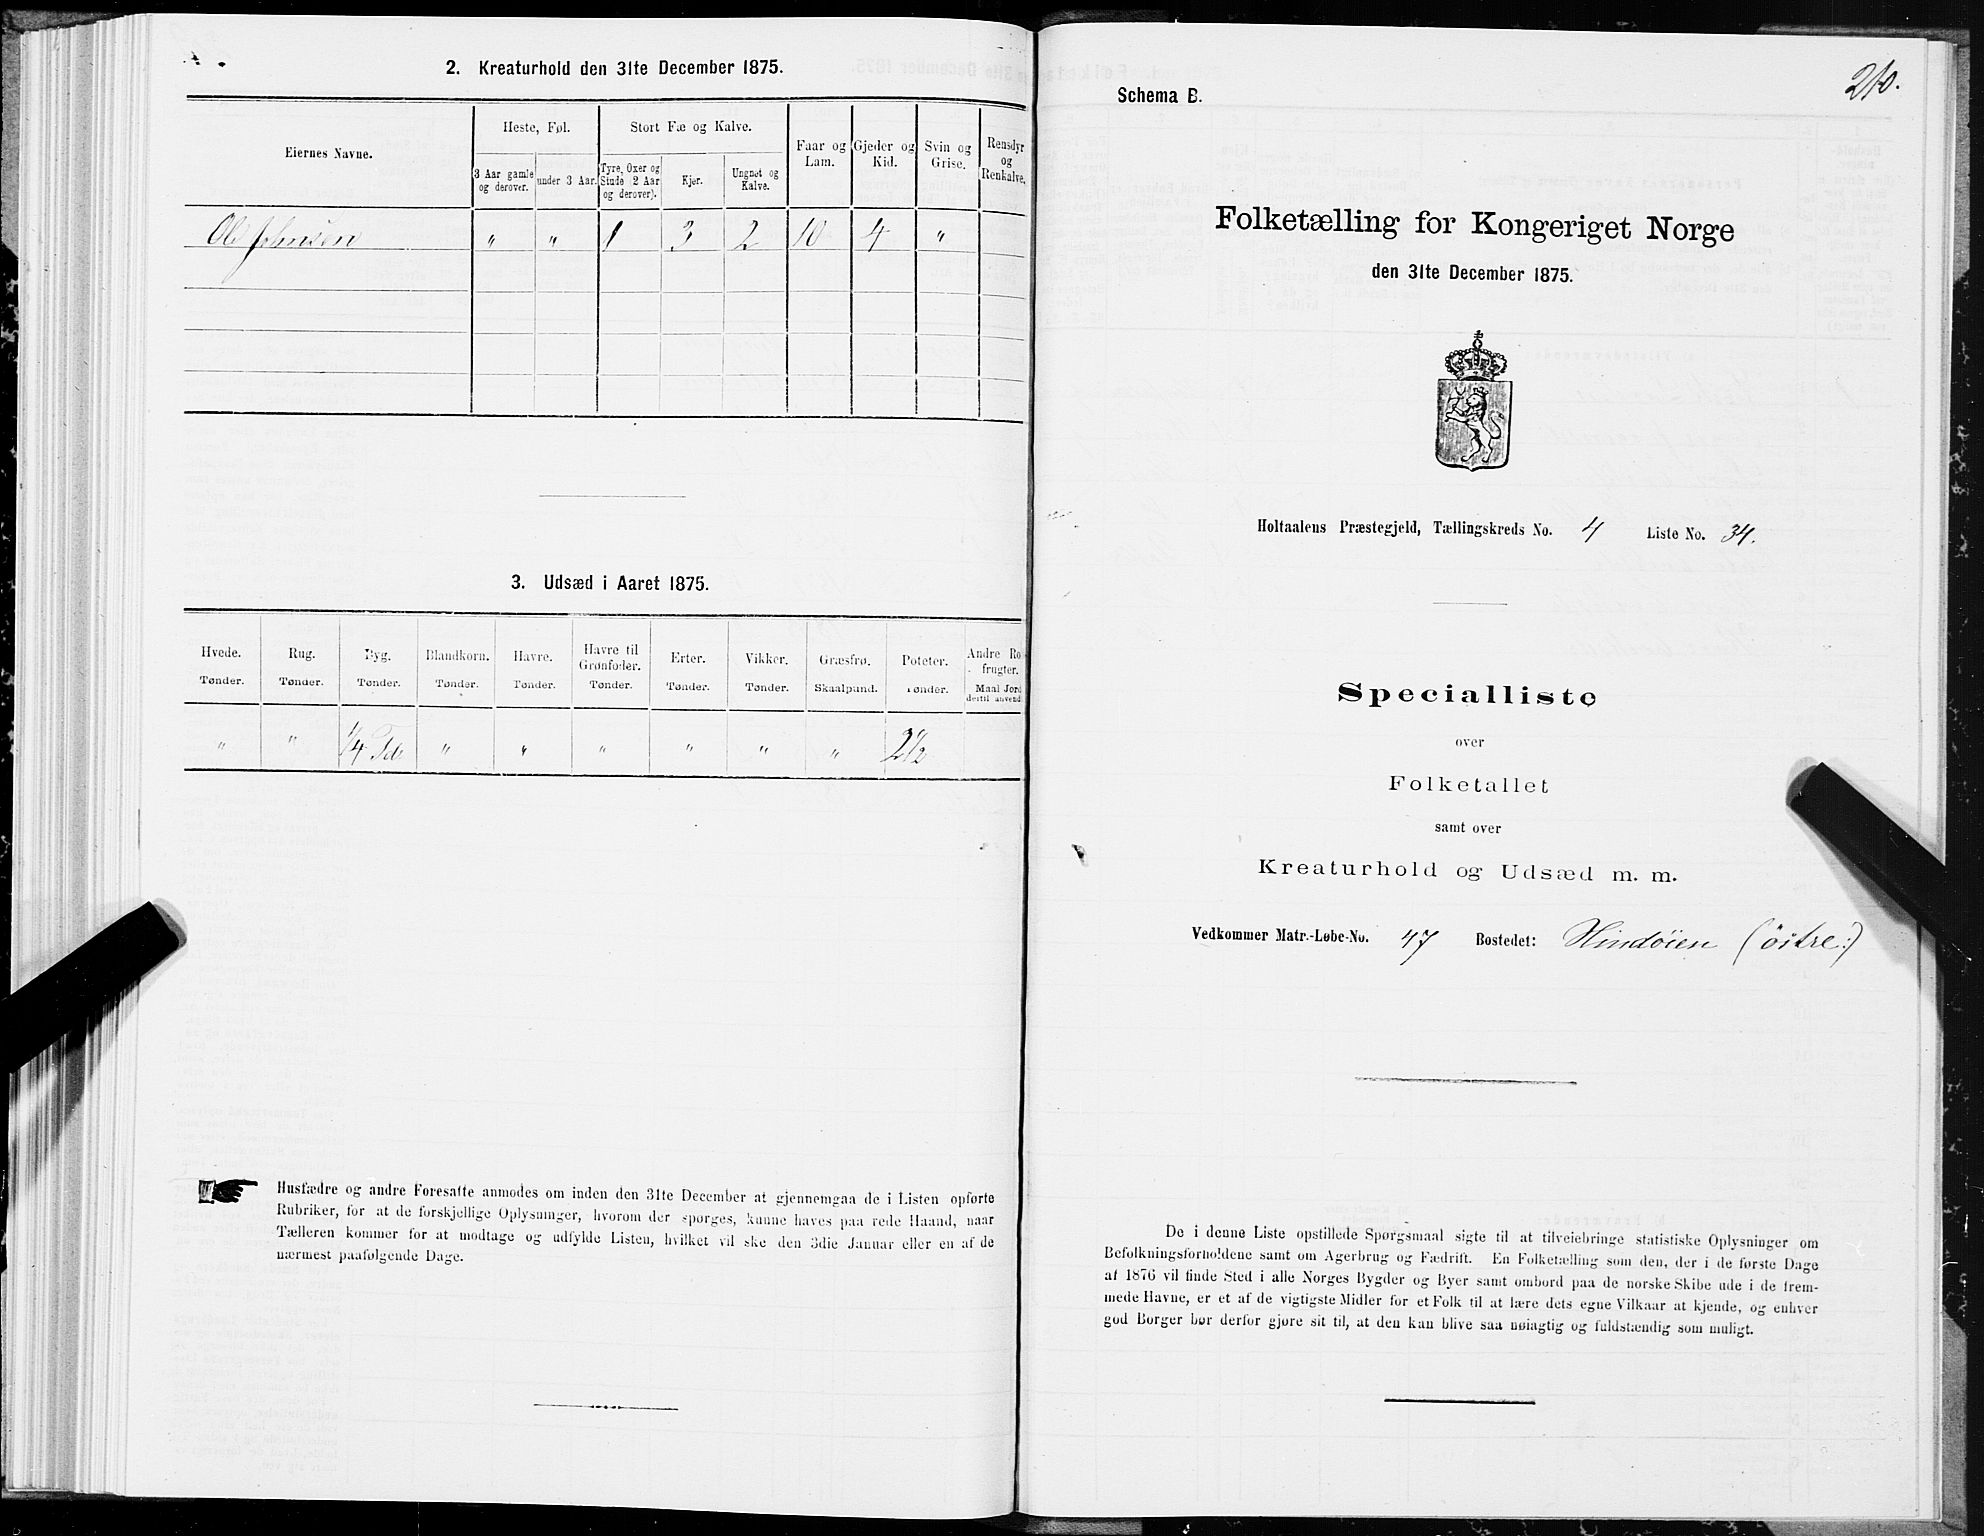 2. Kreaturhold den 31te December 1875.
Eiernes Navne.
Heste, Føl.
Stort Fæ og Kalve.
Faar og Lam.
Gjeder og Kid.
Svin og Grise.
Rensdyr og Renkalve.
3 Aar gamle og derover.
under 3 Aar.
Tyre, Oxer og Stude 2 Aar og derover).
Kjer.
Ungnet og Kalve.
Ole Johnsen " " 1 3 2 10 4 "
3. Udsæd i Aaret 1875.
Hvede. Rug. Byg. Blandkorn. Havre. Havre til Grønfoder. Erter. Vikker. Græsfrø. Poteter. Andre Ro- frugter.
Tønder. Tønder. Tønder. Tønder. Tønder. Tønder. Tønder. Tønder. Skaalpund. Tønder. Maal Jord dertil anvend
" " 1/4 Td " " " " " " 2 1/2
Husfædre og andre Foresatte anmodes om inden den 31te December at gjennemgaa de i Listen opførte
Rubriker, for at de forskjellige Oplysninger, hvorom der spørges, kunne haves paa rede Haand, naar
Tælleren kommer for at modtage og udfylde Listen, hvilket vil ske den 3die Januar eller en af de
nærmest paafølgende Dage.
210.
Schema B.
Folketælling for Kongeriget Norge
den 31te December 1875.
Holtaalens Præstegjeld, Tællingskreds No. 4 Liste No. 34.
Specialliste
over
Folketallet
samt over
Kreaturhold og Udsæd m. m.
Vedkommer Matr.-Løbe-No. 47 Bostedet: Hindöien (östre:)
De i denne Liste opstillede Spørgsmaal sigte til at tilveiebringe statistiske Oplysninger om
Befolkningsforholdene samt om Agerbrug og Fædrift. En Folketælling som den, der i de første Dage
af 1876 vil finde Sted i alle Norges Bygder og Byer samt ombord paa de norske Skibe ude i de frem-
mede Havne, er et af de vigtigste Midler for et Folk til at lære dets egne Vilkaar at kjende, og enhver
god Borger bør derfor gjøre sit til, at den kan blive saa nøiagtig og fuldstændig som muligt.